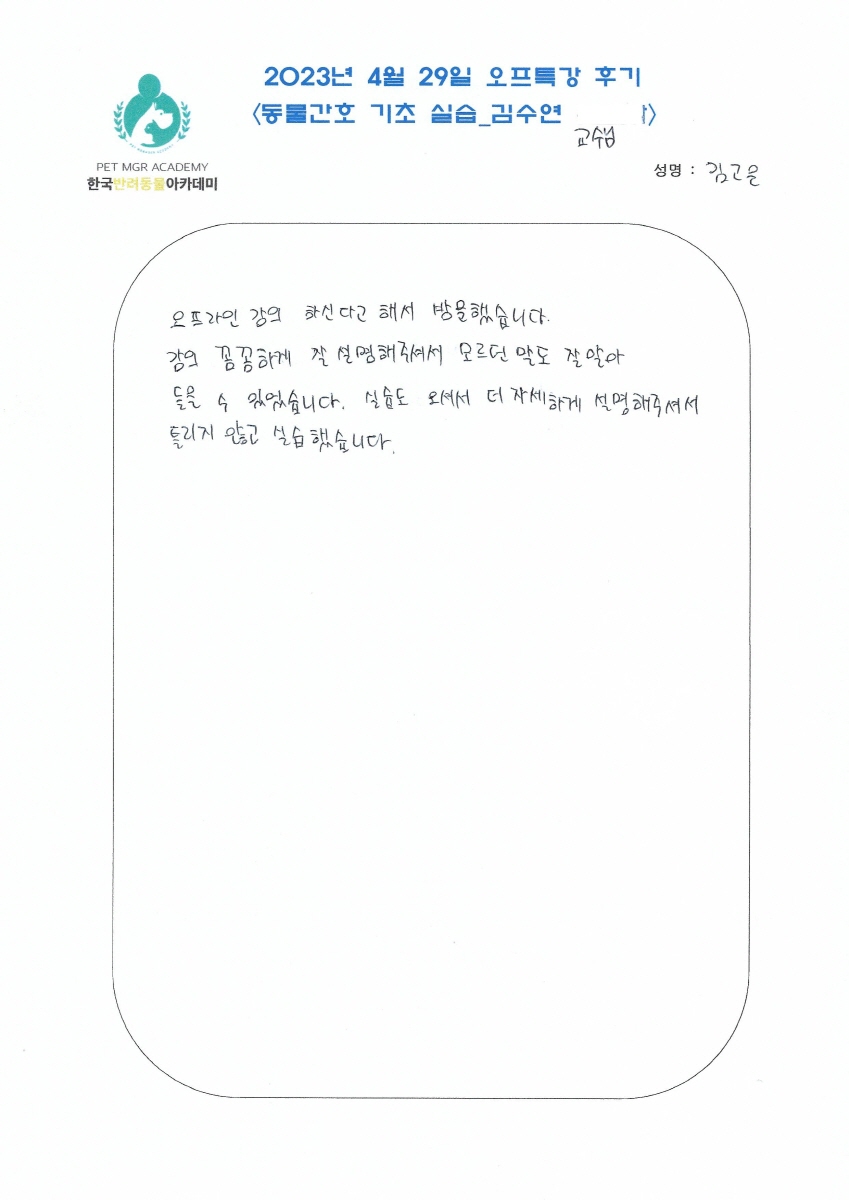 2023년 4월 29일 오프특강 후기
<동물간호 기초 실습_김수연 >
교수님
PET MGR ACADEMY
한국반려동물아카데미
성명 : 김고은
오프라인 강의 하신다고 해서 방문했습니다.
강의 꼼꼼하게 잘 설명해주셔서 모르던 말도 잘알아
들을 수 있었습니다. 실습도 오셔서 더 자세하게 설명해주셔서
틀리지 않고 실습했습니다.